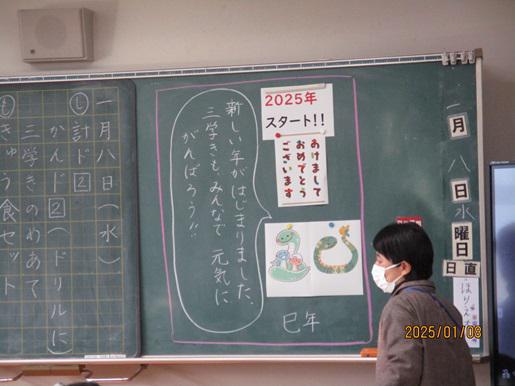 一月八日(水)
し 計ド②
かんド②(ドリルに
三学きのめあて
も きゅう食セット
2025年
スタート!!
あけまして
おめでとう
ございます
新しい年がはじまりました。
三学きも、みんなで元気に
がんばろう!!
巳年
一月八日水曜日
日直
2025/01/08